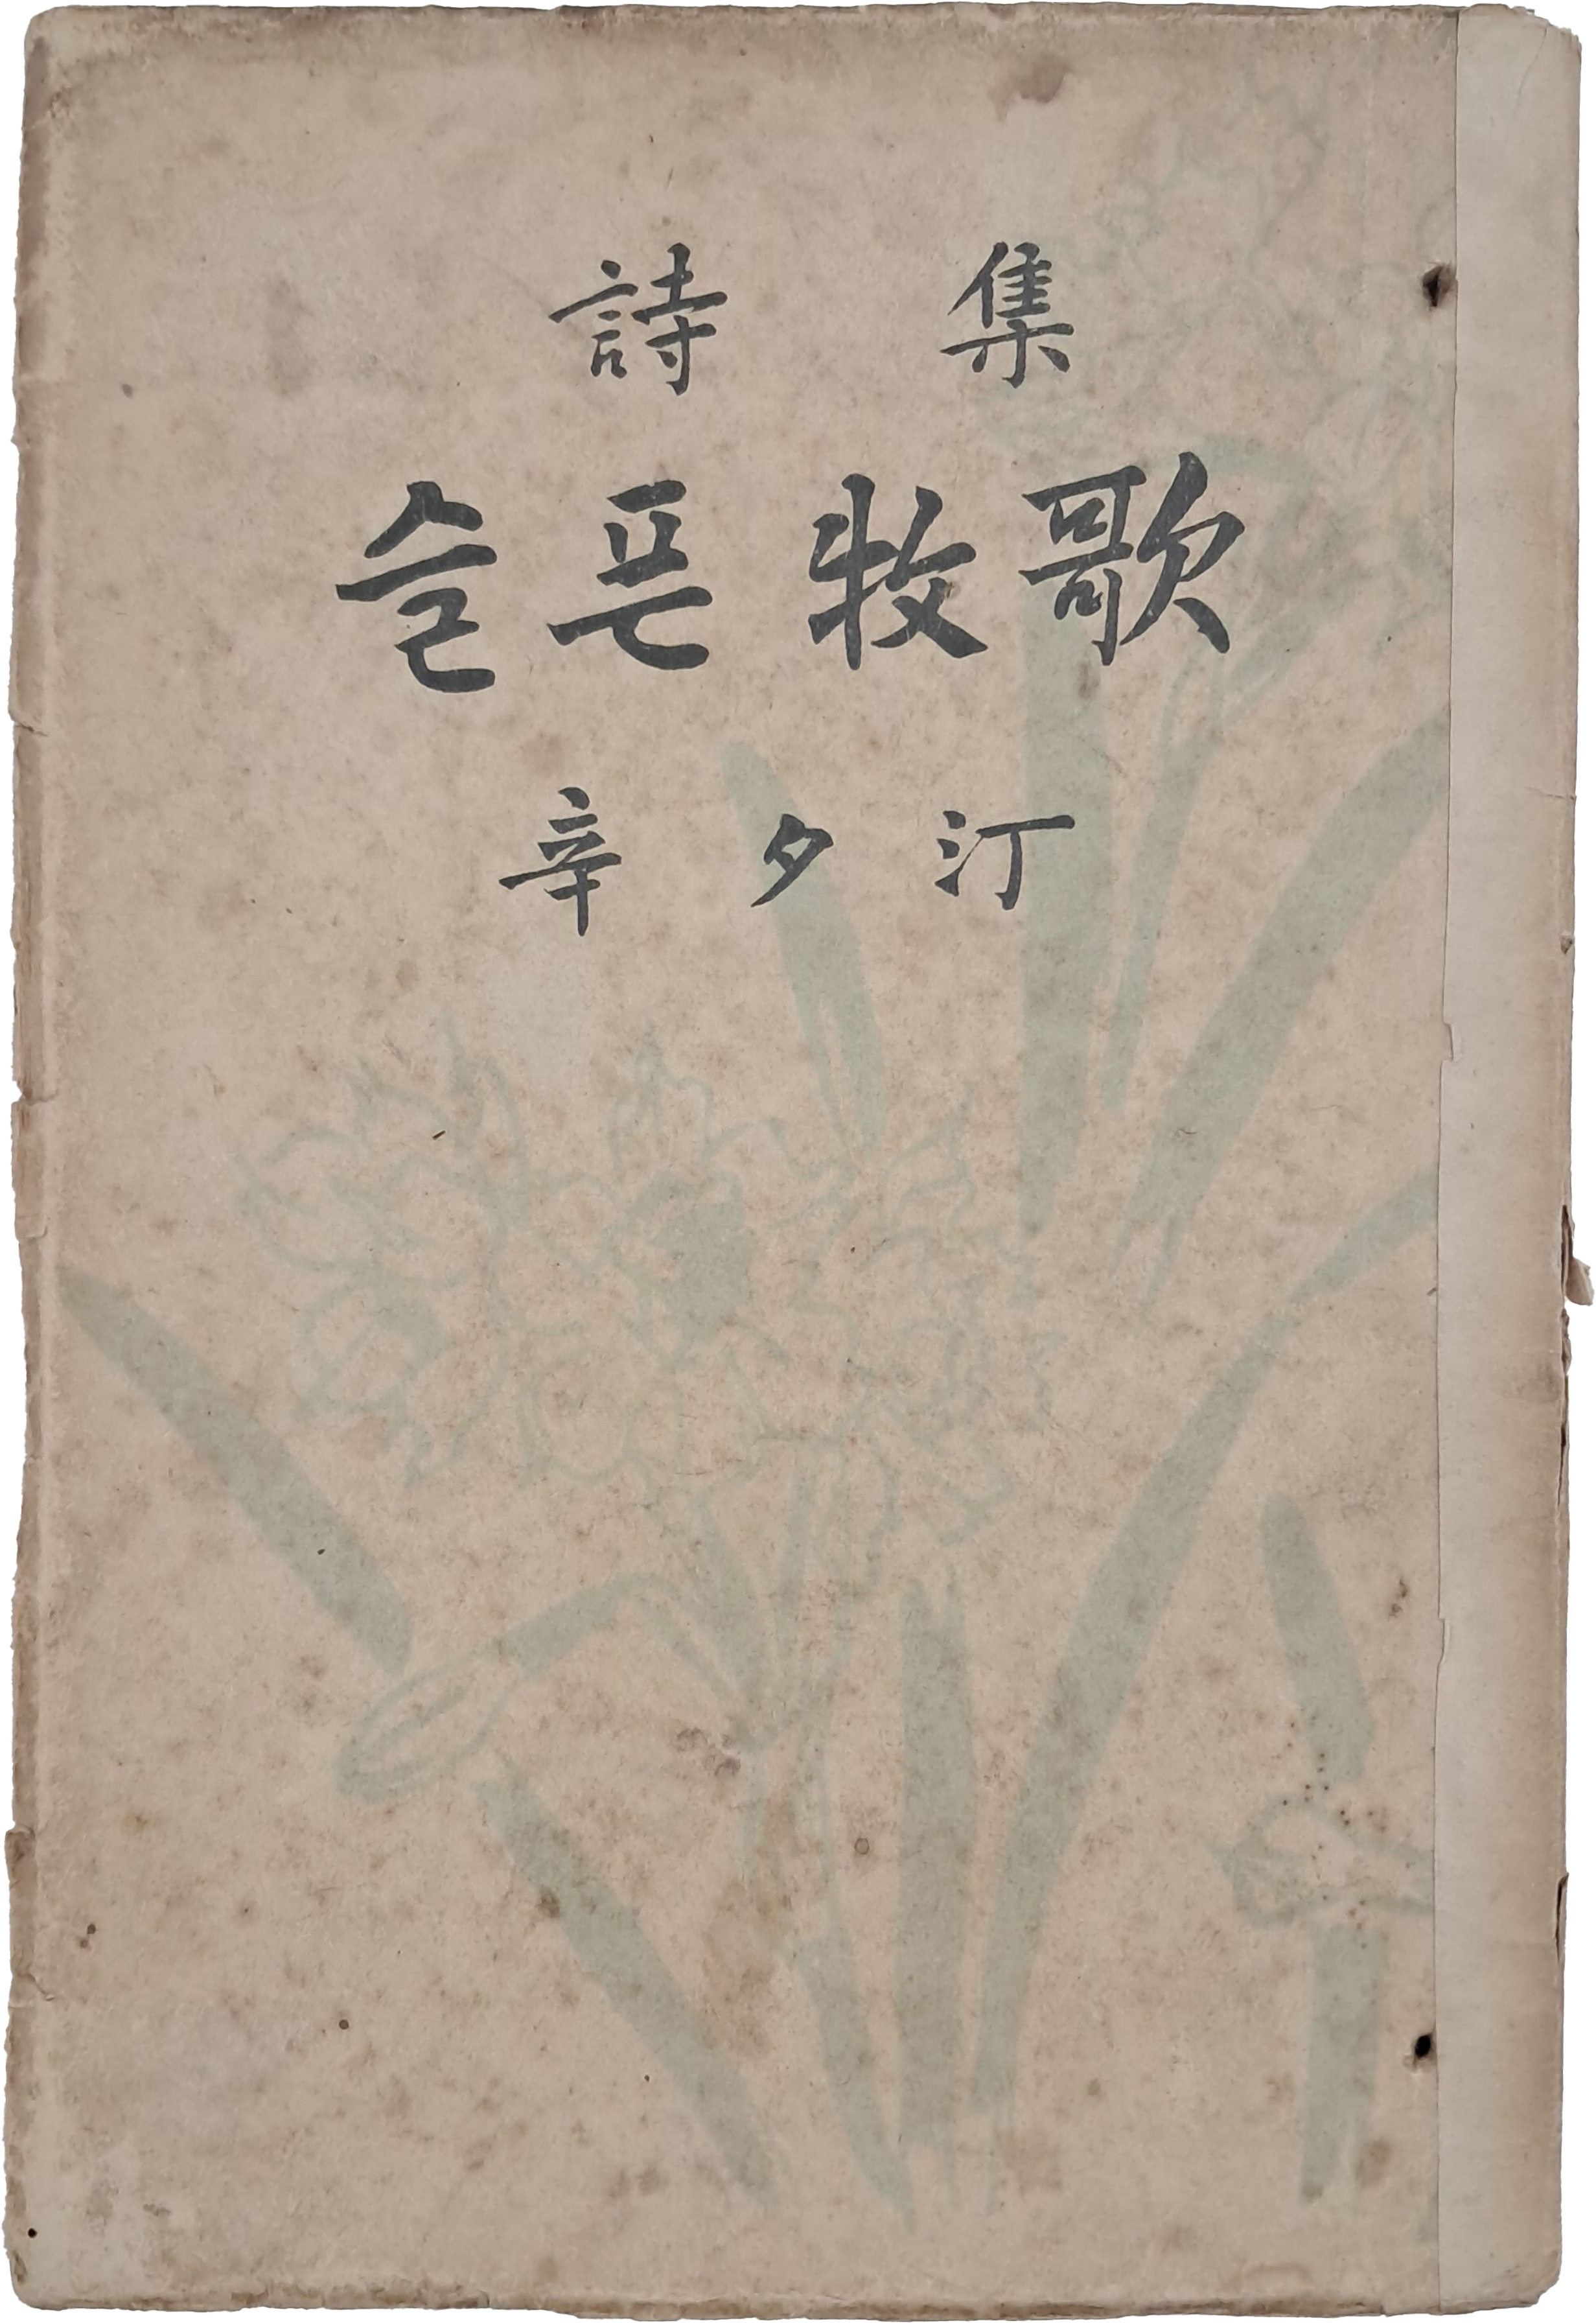 詩集
슬픈 牧歌
辛夕汀